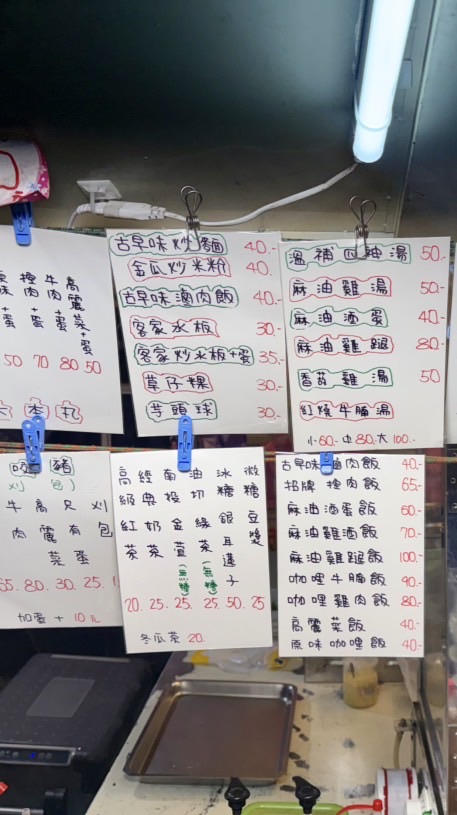 古早味炒麵 40.-
金瓜炒米粉 40.-
古早味滷肉飯 40.-
客家水粄 30.-
客家炒水粄+蛋 35.-
草仔粿 30.-
芋頭球 30.-
溫補四神湯 50.-
麻油雞湯 50.-
麻油酒蛋 40.-
麻油雞腿 80.-
香菇雞湯 50
紅燒牛腩湯
小60.-中80.大100.-
50 70 80 50
牛肉 80.
高麗菜 30.
只有蛋 25.
刈包
加蛋+10元
高級紅茶 20.
經典奶茶 25.
南投金萱茶(無糖) 25.
油切綠茶(無糖) 25.
冰糖銀耳蓮子 50.
微糖豆漿 25
冬瓜茶 20.
古早味滷肉飯 40.-
招牌焢肉飯 65.-
麻油酒蛋飯 60.-
麻油雞酒飯 70.-
麻油雞腿飯 100.-
咖哩牛腩飯 90.-
咖哩雞肉飯 80.-
高麗菜飯 40.-
原味咖哩飯 40.-